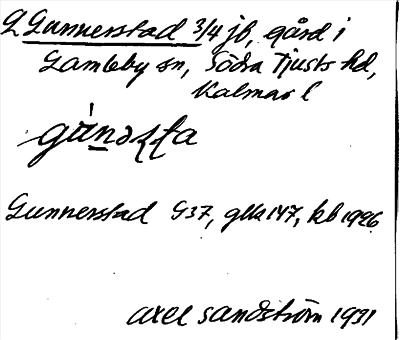 Q Gunnerstad 3/4 jb, gård i
Gamleby sn, Södra Tjusts hd,
Kalmar l
Gunnerstad G37, gllk 147, kb 1926
Axel Sandström 1931